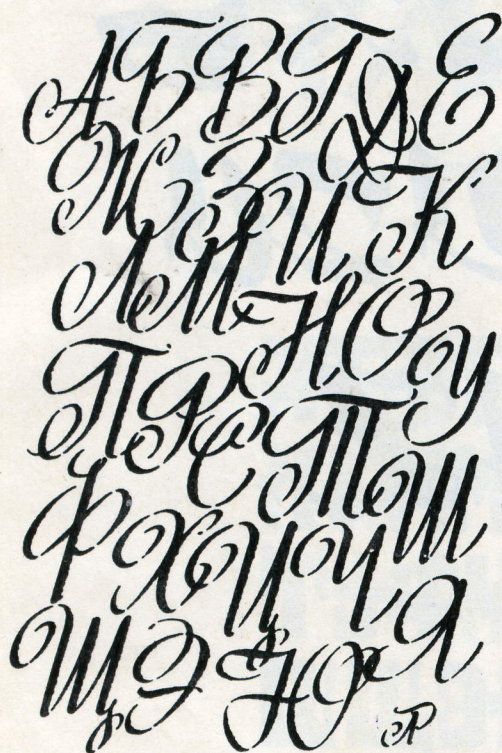 АБВГДЕ
ЖЗИК
ЛМНОУ
ПРСТШ
ФХЦЧ
ЩЭЮЯ